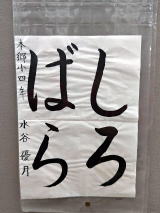 しろ
ばら
本郷小四年
水谷優月